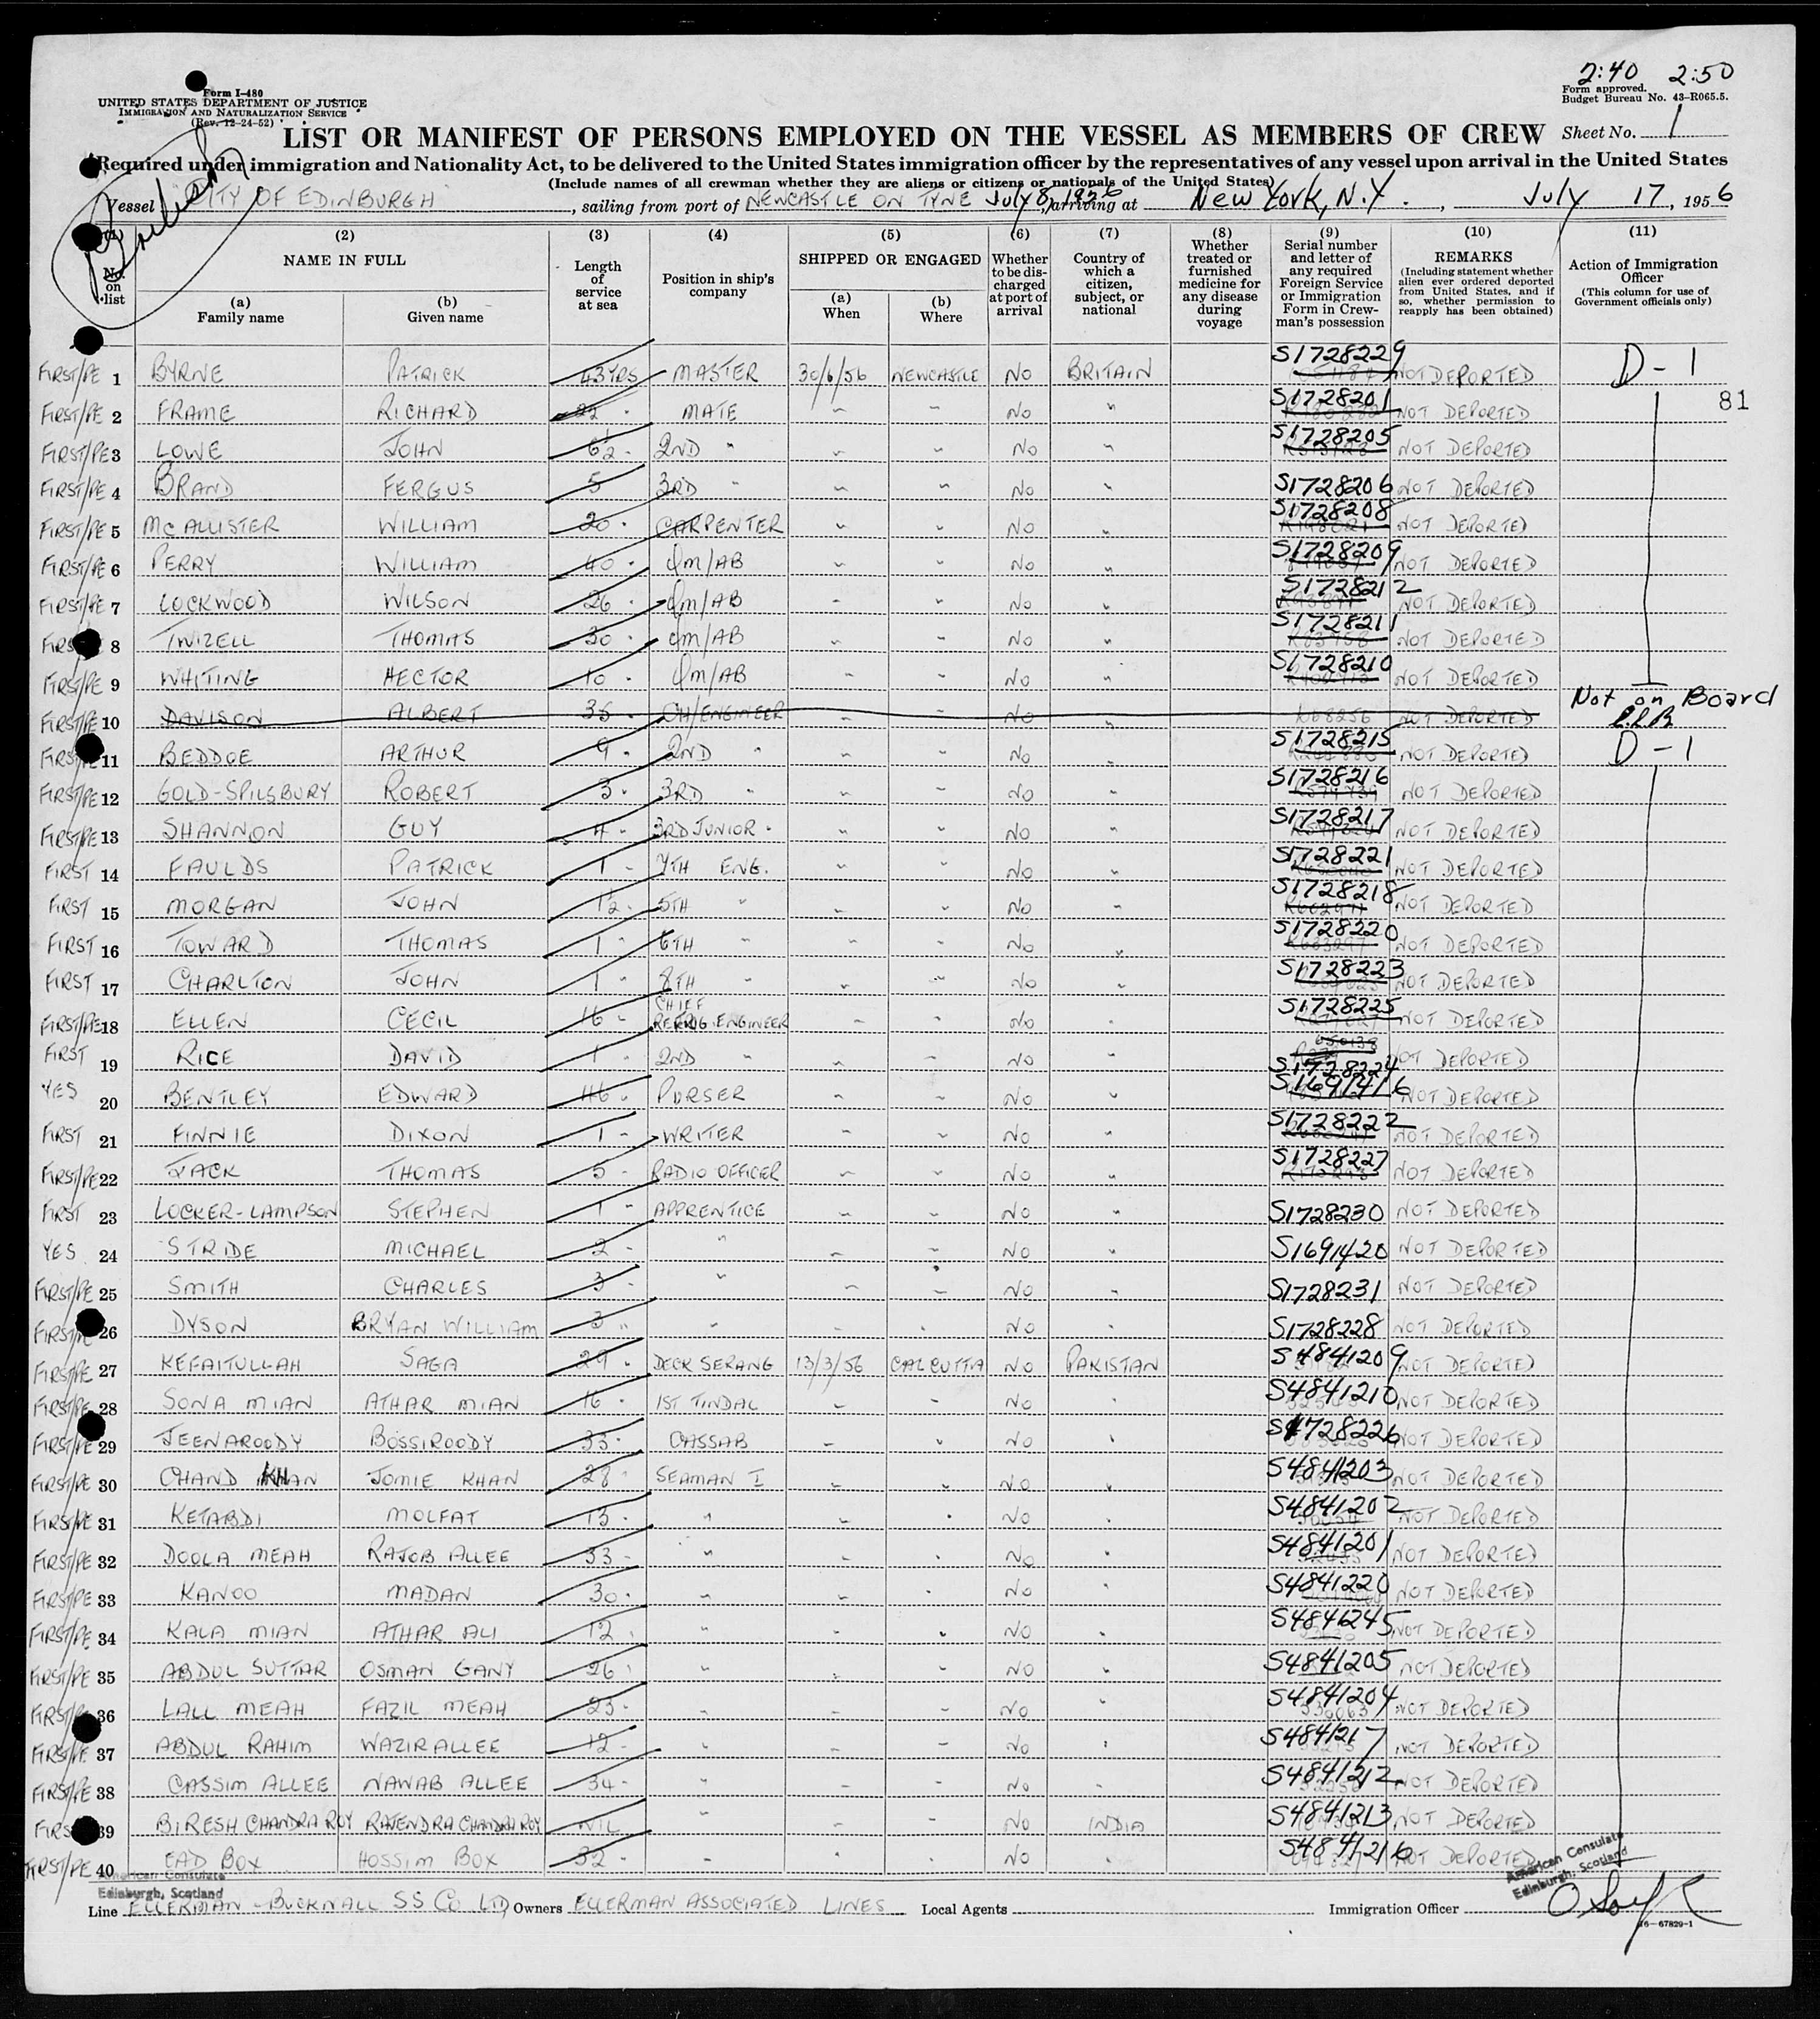 2:40 2:50
Form I-480
UNITED STATES DEPARTMENT OF JUSTICE
IMMIGRATION AND NATURALIZATION SERVICE
(Rev. 12-24-52)
Form approved.
Budget Bureau No. 43-R065.5.
LIST OR MANIFEST OF PERSONS EMPLOYED ON THE VESSEL AS MEMBERS OF CREW Sheet No. 1
Required under immigration and Nationality Act, to be delivered to the United States immigration officer by the representatives of any vessel upon arrival in the United States
(Include names of all crewman whether they are aliens or citizens or nationals of the United States)
Vessel CITY OF EDINBURGH, sailing from port of NEWCASTLE ON TYNE July 8, 1956, arriving at New York, N.Y., July 17, 1956
(1) No. on list
(2) NAME IN FULL (a) Family name (b) Given name
(3) Length of service at sea
(4) Position in ship's company
(5) SHIPPED OR ENGAGED (a) When (b) Where
(6) Whether to be discharged at port of arrival
(7) Country of which a citizen, subject, or national
(8) Whether treated or furnished medicine for any disease during voyage
(9) Serial number and letter of any required Foreign Service or Immigration Form in Crewman's possession
(10) REMARKS (Including statement whether alien ever ordered deported from United States, and if so, whether permission to reapply has been obtained)
(11) Action of Immigration Officer (This column for use of Government officials only)
FIRST/PE 1 BYRNE PATRICK 43 YRS MASTER 30/6/56 NEWCASTLE NO BRITAIN S1728229 NOT DEPORTED D-1
FIRST/PE 2 FRAME RICHARD 22 " MATE " " NO " S1728201 NOT DEPORTED 81
FIRST/PE 3 LOWE JOHN 6½ " 2ND " " " NO " S1728205 NOT DEPORTED
FIRST/PE 4 BRAND FERGUS 5 3RD " " " NO " S1728206 NOT DEPORTED
FIRST/PE 5 MCALLISTER WILLIAM 20 " CARPENTER " " NO " S1728208 NOT DEPORTED
FIRST/PE 6 PERRY WILLIAM 40 " QM/AB " " NO " S1728209 NOT DEPORTED
FIRST/PE 7 LOCKWOOD WILSON 26 " QM/AB " " NO " S1728212 NOT DEPORTED
FIRST 8 TWIZELL THOMAS 30 " QM/AB " " NO " S1728211 NOT DEPORTED
FIRST/PE 9 WHITING HECTOR 10 " QM/AB " " NO " S1728210 NOT DEPORTED
FIRST/PE 10 DAVISON ALBERT 35 " CH/ENGINEER " " NO K68256 NOT DEPORTED Not on Board
FIRST/PE 11 BEDDOE ARTHUR 9 " 2ND " " " NO " S1728215 NOT DEPORTED D-1
FIRST/PE 12 GOLD-SPILSBURY ROBERT 3 " 3RD " " " NO " S1728216 NOT DEPORTED
FIRST/PE 13 SHANNON GUY 4 " 3RD JUNIOR " " " NO " S1728217 NOT DEPORTED
FIRST 14 FAULDS PATRICK 1 " 7TH ENG. " " NO " S1728221 NOT DEPORTED
FIRST 15 MORGAN JOHN 1½ " 5TH " " " NO " S1728218 NOT DEPORTED
FIRST 16 TOWARD THOMAS 1 " 6TH " " " NO " S1728220 NOT DEPORTED
FIRST 17 CHARLTON JOHN 1 " 8TH " " " NO " S1728223 NOT DEPORTED
FIRST/PE 18 ELLEN CECIL 16 " CHIEF REFRIG. ENGINEER " " NO " S1728225 NOT DEPORTED
FIRST 19 RICE DAVID 1 " 2ND " " " NO " S1728224 NOT DEPORTED
YES 20 BENTLEY EDWARD 46 " PURSER " " NO " S1691416 NOT DEPORTED
FIRST 21 FINNIE DIXON 1 " WRITER " " NO " S1728222 NOT DEPORTED
FIRST/PE 22 JACK THOMAS 5 " RADIO OFFICER " " NO " S1728227 NOT DEPORTED
FIRST 23 LOCKER-LAMPSON STEPHEN 1 " APPRENTICE " " NO " S1728230 NOT DEPORTED
YES 24 STRIDE MICHAEL 2 " " " " NO " S1691420 NOT DEPORTED
FIRST/PE 25 SMITH CHARLES 3 " " " " NO " S1728231 NOT DEPORTED
FIRST 26 DYSON BRYAN WILLIAM 3 " " " " NO " S1728228 NOT DEPORTED
FIRST/PE 27 KEFAITULLAH SAGA 29 " DECK SERANG 13/3/56 CALCUTTA NO PAKISTAN S4841209 NOT DEPORTED
FIRST/PE 28 SONA MIAN ATHAR MIAN 16 " 1ST TINDAL " " NO " S4841210 NOT DEPORTED
FIRST/PE 29 JEENAROODY BOSSIROODY 33 " CASSAB " " NO " S1728226 NOT DEPORTED
FIRST/PE 30 CHAND KHAN JOMIE KHAN 28 " SEAMAN I " " NO " S4841203 NOT DEPORTED
FIRST/PE 31 KETABDI MOLFAT 13 " " " " NO " S4841202 NOT DEPORTED
FIRST/PE 32 DOOLA MEAH RAJOB ALLEE 33 " " " " NO " S4841201 NOT DEPORTED
FIRST/PE 33 KANOO MADAN 30 " " " " NO " S4841220 NOT DEPORTED
FIRST/PE 34 KALA MIAN ATHAR ALI 12 " " " " NO " S4841245 NOT DEPORTED
FIRST/PE 35 ABDUL SUTTAR OSMAN GANY 26 " " " " NO " S4841205 NOT DEPORTED
FIRST/PE 36 LALL MEAH FAZIL MEAH 23 " " " " NO " S4841204 NOT DEPORTED
FIRST/PE 37 ABDUL RAHIM WAZIR ALLEE 12 " " " " NO " S4841217 NOT DEPORTED
FIRST/PE 38 CASSIM ALLEE NAWAB ALLEE 34 " " " " NO " S4841212 NOT DEPORTED
FIRST 39 BIRESH CHANDRA ROY RAJENDRA CHANDRA ROY NIL " " " NO INDIA S4841213 NOT DEPORTED
FIRST/PE 40 EAD BOX HOSSIM BOX 32 " " " " NO " S4841216 NOT DEPORTED
American Consulate
Edinburgh, Scotland
American Consulate
Edinburgh, Scotland
Line ELLERMAN-BUCKNALL SS Co LTD Owners ELLERMAN ASSOCIATED LINES Local Agents Immigration Officer
16-67829-1